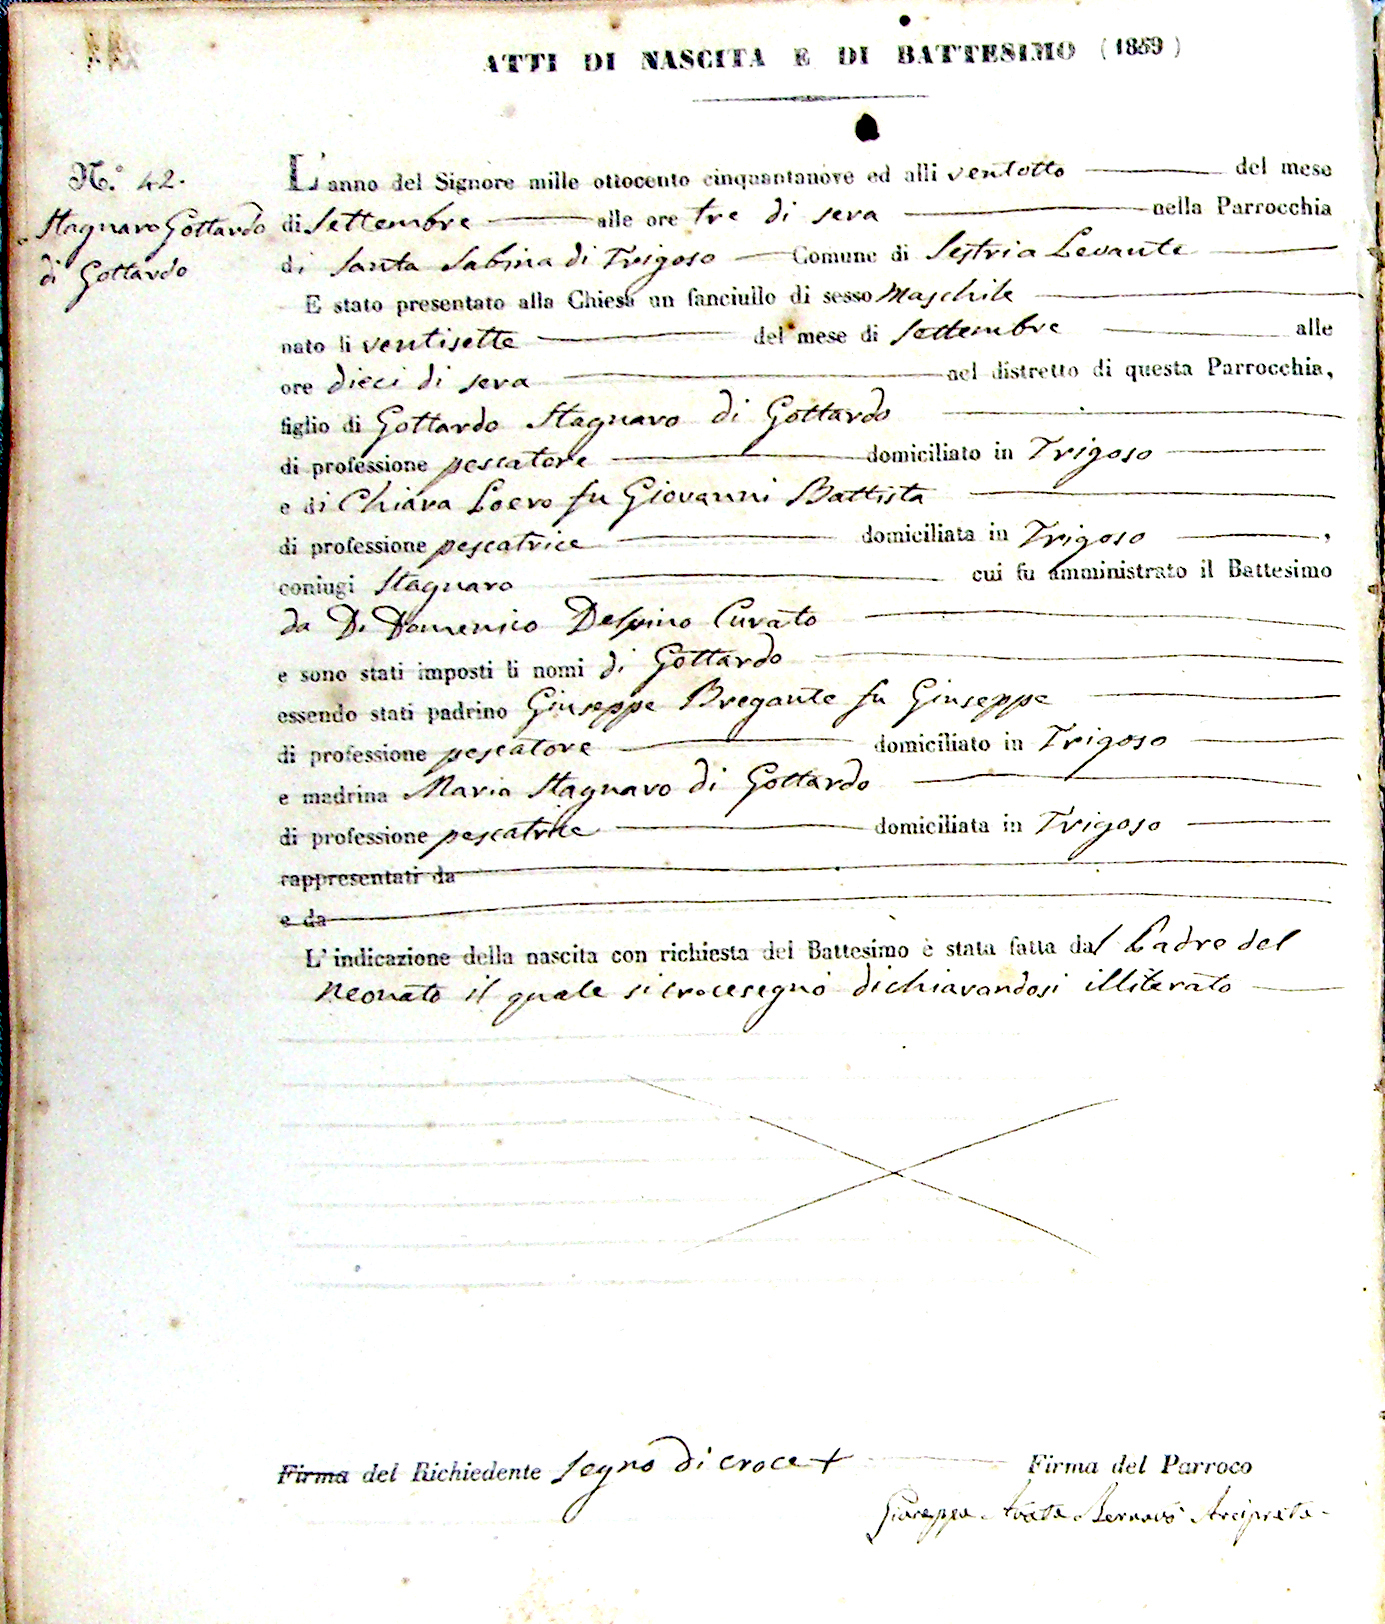 ATTI DI NASCITA E DI BATTESIMO (1859)
N.° 42.
Stagnaro Gottardo
di Gottardo
L'anno del Signore mille ottocento cinquantanove ed alli ventotto del mese
di Settembre alle ore tre di sera nella Parrocchia
di Santa Sabina di Trigoso Comune di Sestri a Levante
E stato presentato alla Chiesa un fanciullo di sesso Maschile
nato li ventisette del mese di Settembre alle
ore dieci di sera nel distretto di questa Parrocchia,
figlio di Gottardo Stagnaro di Gottardo
di professione pescatore domiciliato in Trigoso
e di Chiara Loero fu Giovanni Battista
di professione pescatrice domiciliata in Trigoso,
coniugi Stagnaro cui fu amministrato il Battesimo
da D. Domenico Delpino Curato
e sono stati imposti li nomi di Gottardo
essendo stati padrino Giuseppe Bregante fu Giuseppe
di professione pescatore domiciliato in Trigoso
e madrina Maria Stagnaro di Gottardo
di professione pescatrice domiciliata in Trigoso
rappresentati da
e da
L'indicazione della nascita con richiesta del Battesimo è stata fatta dal Padre del
neonato il quale si crocesegnò dichiarandosi illiterato
Firma del Richiedente Segno di croce +
Firma del Parroco
Giuseppe Arciprete